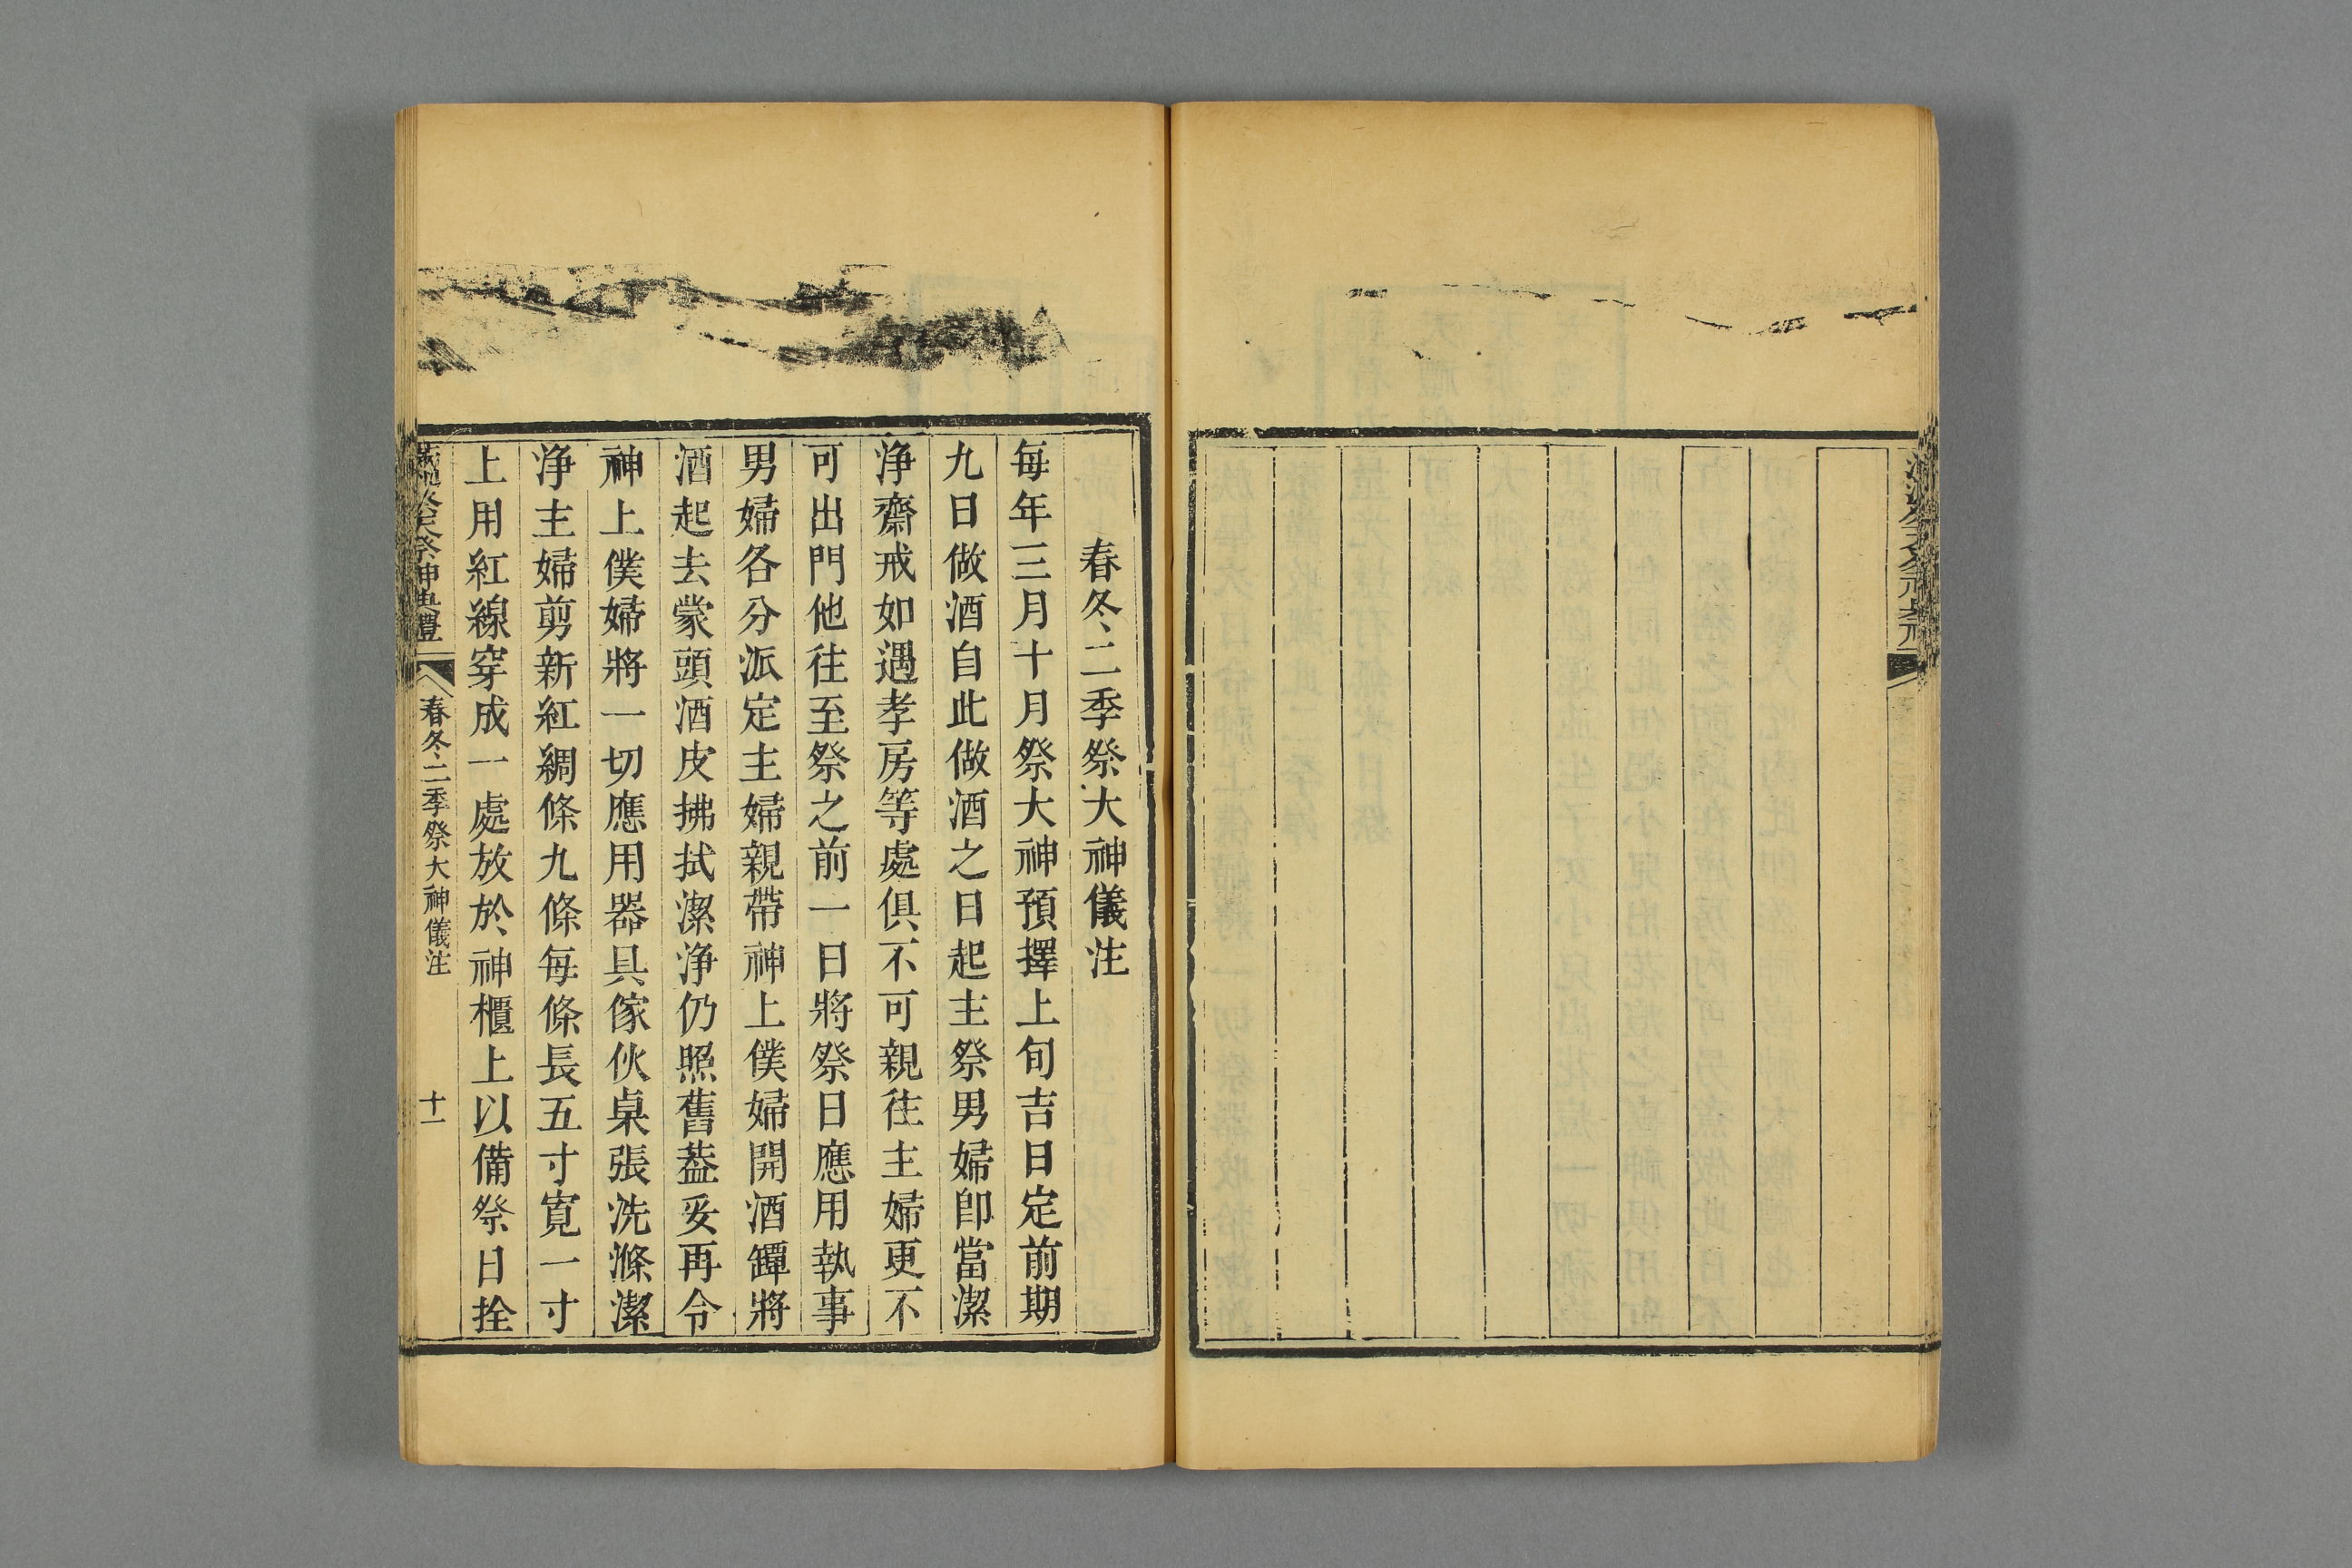 春冬二季祭大神儀注
每年三月十月祭大神預擇上旬吉日定前期
九日做酒自此做酒之日起主祭男婦卽當潔
浄齋戒如遇孝房等處俱不可親往主婦更不
可出門他往至祭之前一日將祭日應用執事
男婦各分派定主婦親帶神上僕婦開酒罈將
酒起去蒙頭酒皮拂拭潔浄仍照舊葢妥再令
神上僕婦將一切應用器具傢伙桌張洗滌潔
浄主婦剪新紅綢條九條每條長五寸寛一寸
上用紅線穿成一處放於神櫃上以備祭日拴
祭天祭神典禮
春冬二季祭大神儀注
十一